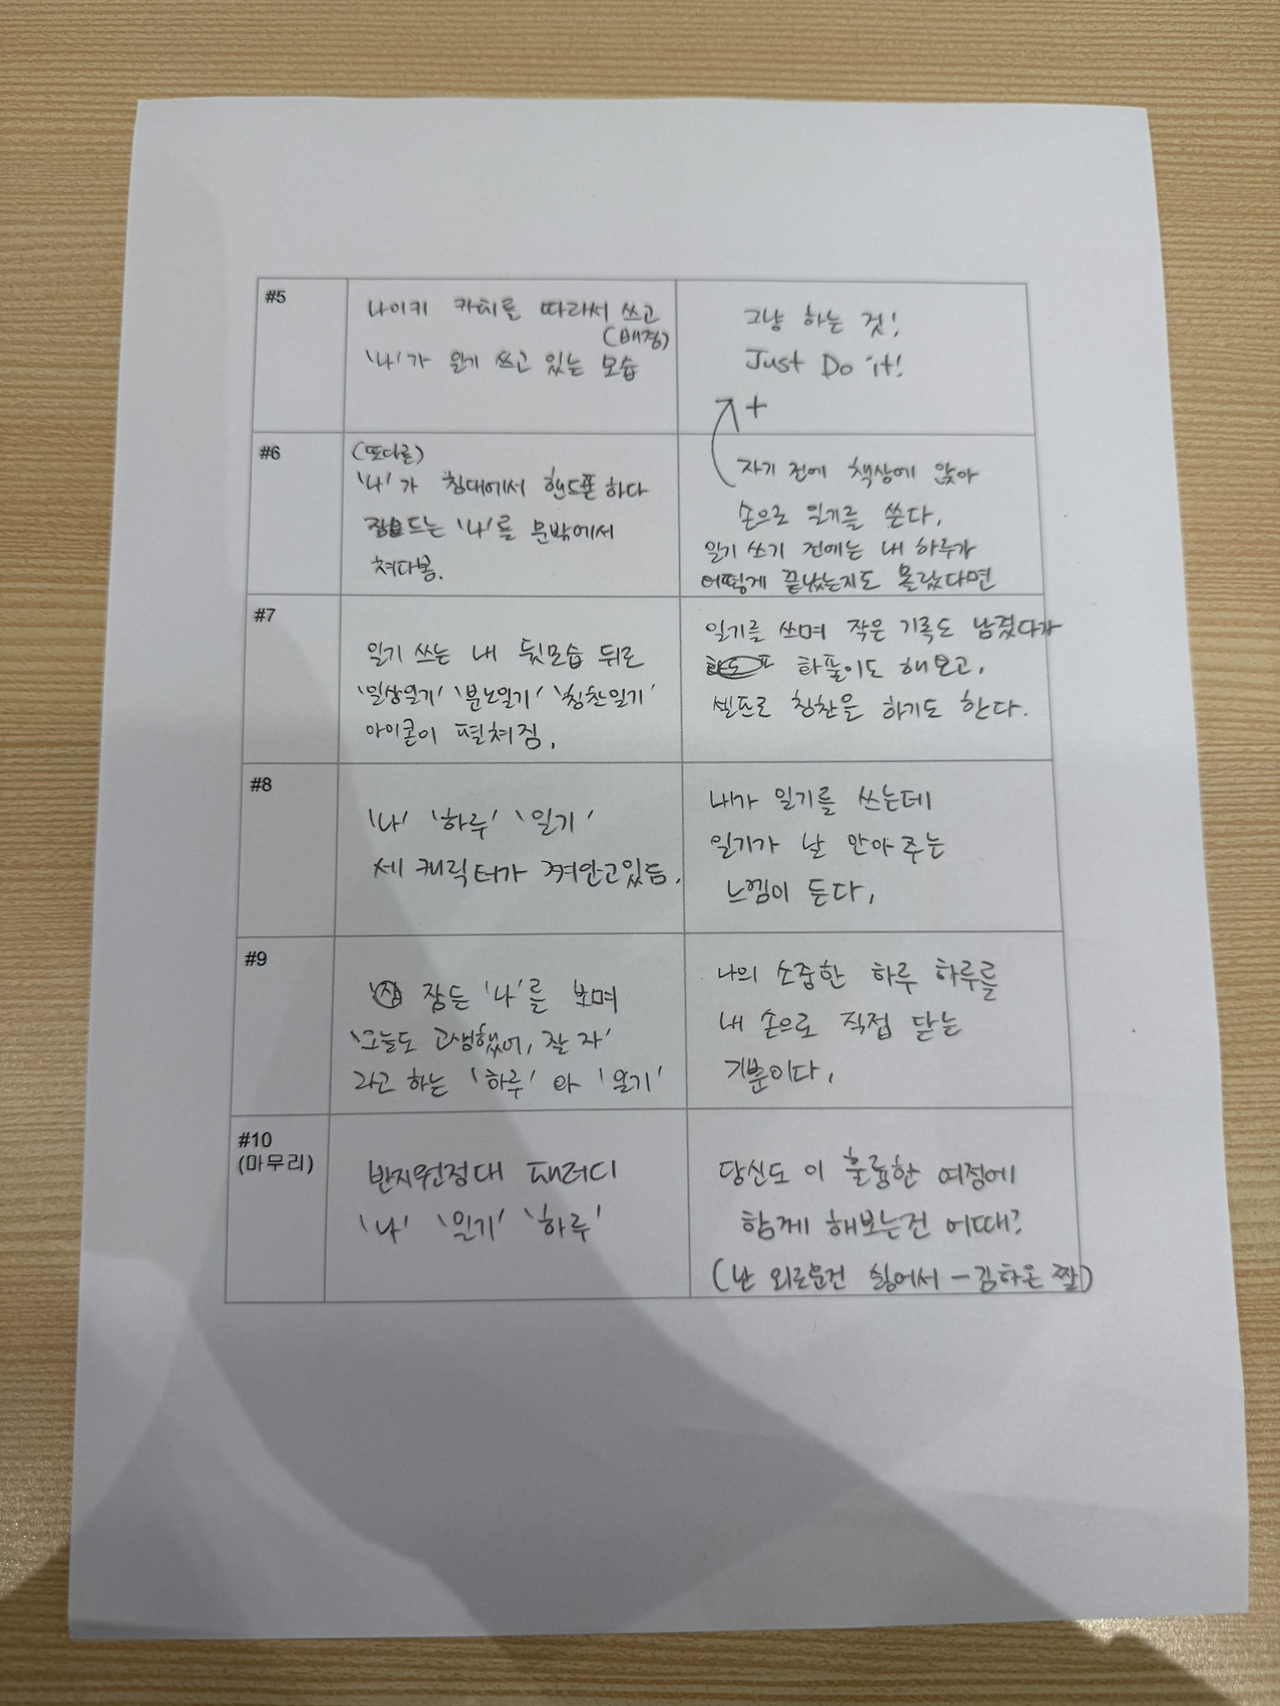 #5
나이키 카피를 따라서 쓰고
(배경)
'나'가 일기 쓰고 있는 모습
그냥 하는 것!
Just Do it!
+
#6
(또다른)
'나'가 침대에서 핸드폰 하다
잠드는 '나'를 문밖에서
쳐다봄.
자기 전에 책상에 앉아
손으로 일기를 쓴다.
일기 쓰기 전에는 내 하루가
어떻게 끝났는지도 몰랐다면
#7
일기 쓰는 내 뒷모습 뒤로
'일상일기' '분노일기' '칭찬일기'
아이콘이 펼쳐짐.
일기를 쓰며 작은 기록도 남겼다가
화풀이도 해보고,
셀프로 칭찬을 하기도 한다.
#8
'나' '하루' '일기'
세 캐릭터가 껴안고있음.
내가 일기를 쓰는데
일기가 날 안아 주는
느낌이 든다.
#9
잠든 '나'를 보며
'오늘도 고생했어, 잘 자'
라고 하는 '하루' 와 '일기'
나의 소중한 하루 하루를
내 손으로 직접 닫는
기분이다.
#10
(마무리)
반지원정대 패러디
'나' '일기' '하루'
당신도 이 훌륭한 여정에
함께 해보는건 어때?
(난 외로운건 싫어서 - 김하온 짤)